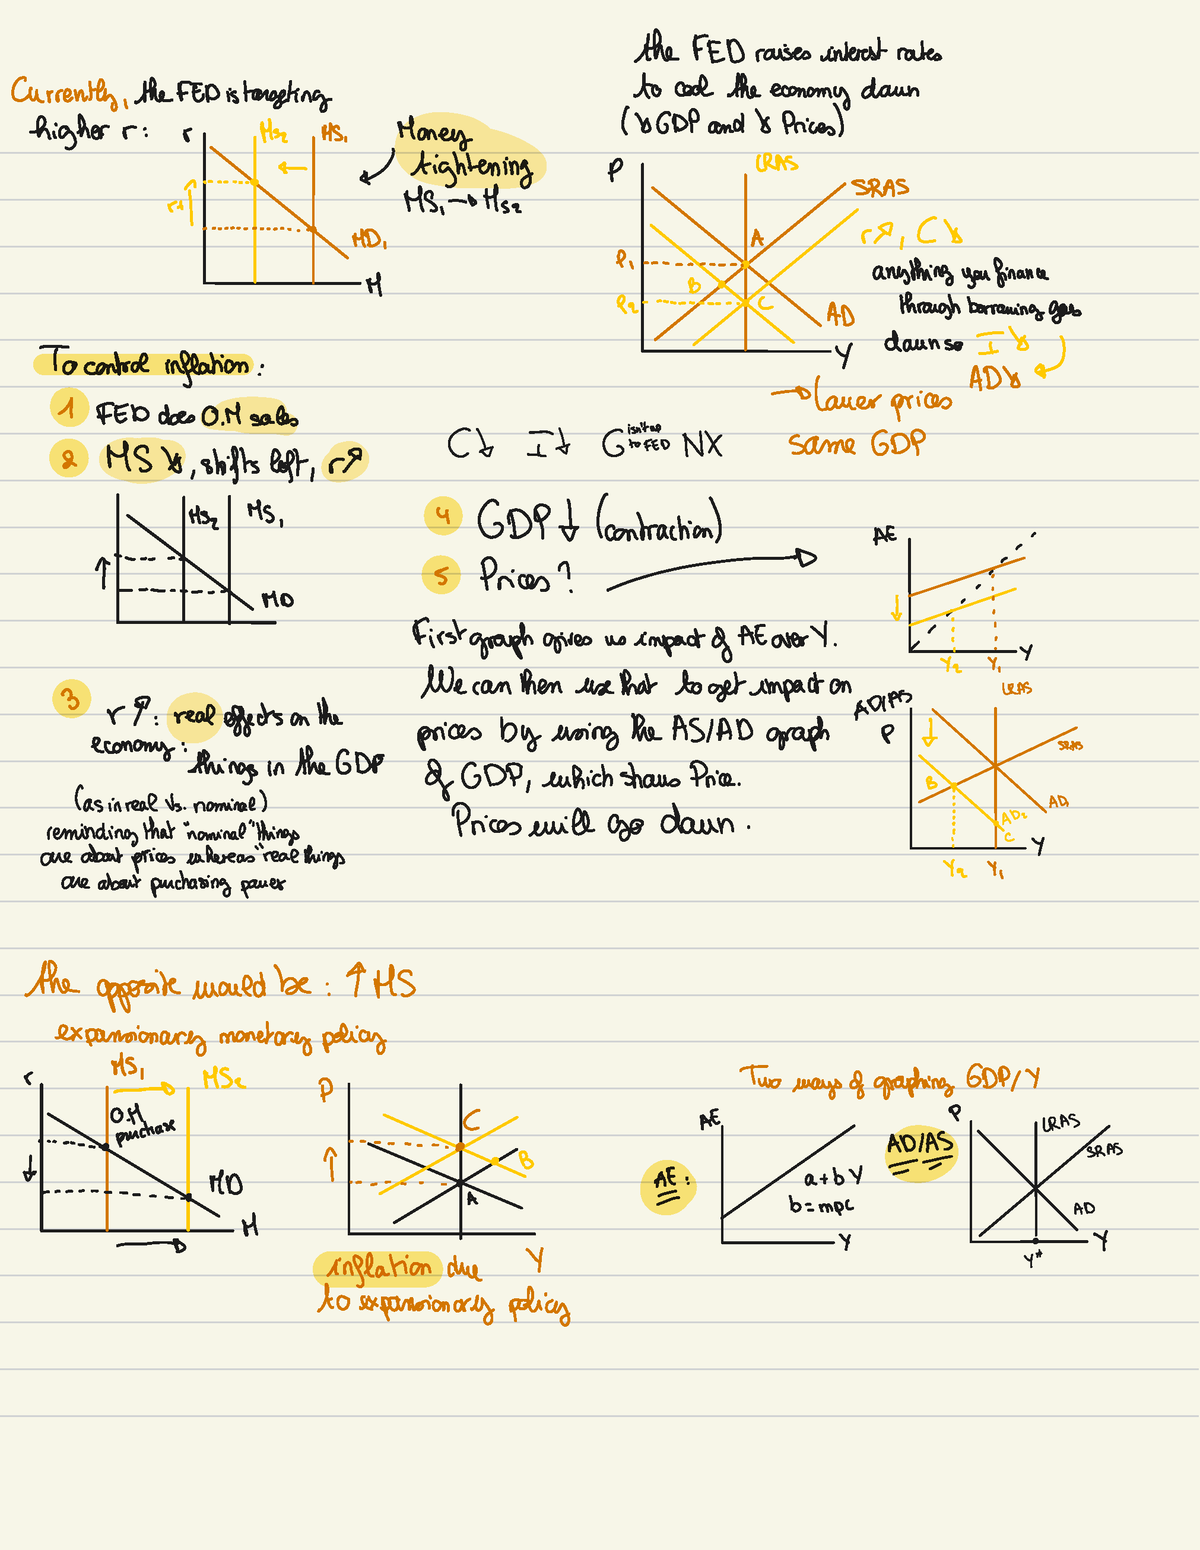 Currently, the FED is targeting
higher r:
r
MS2
MS1
r↑
MD1
M
Money
tightening
MS1 → MS2
the FED raises interest rates
to cool the economy down
(↘ GDP and ↘ Prices)
P
LRAS
SRAS
A
P1
B
P2
C
AD
Y
r↗, C↘
anything you finance
through borrowing goes
down so I ↘
AD↘
→ lower prices
same GDP
To control inflation:
1 FED does O.M sales
2 MS ↘, shifts left, r↗
MS2
MS1
MD
C↓ I↓ G isn't up to FED NX
4 GDP ↓ (contraction)
5 Prices?
AE
Y2
Y1
Y
First graph gives us impact of AE over Y.
We can then use that to get impact on
prices by using the AS/AD graph
of GDP, which shows Price.
Prices will go down.
AD/AS
P
LRAS
SRAS
B
AD1
AD2
C
Y
Y2
Y1
3 r↗: real effects on the
economy:
things in the GDP
(as in real Vs. nominal)
reminding that "nominal" things
are about prices whereas "real things
are about purchasing power
the opposite would be: ↑ MS
expansionary monetary policy
r
MS1
MS2
O.M
purchase
MD
M
P
C
B
A
Y
inflation due
to expansionary policy
Two ways of graphing GDP/Y
AE:
AE
a + b Y
b = mpc
Y
AD/AS
P
LRAS
SRAS
AD
Y
Y*